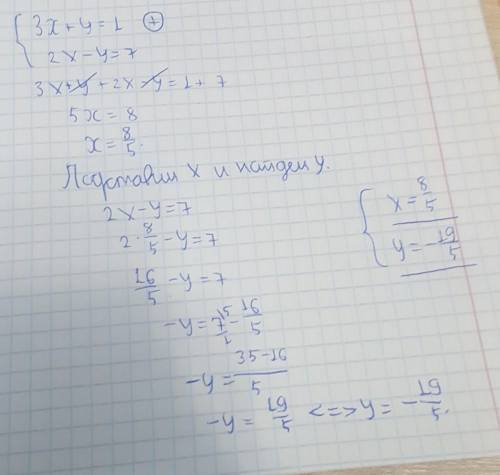 { 3x + y = 1 (+)
2x - y = 7
3x + y + 2x - y = 1 + 7
5x = 8
x = 8/5.
Подставим x и найдем y.
2x - y = 7
2 · 8/5 - y = 7
16/5 - y = 7
-y = 7/1 ⁵ - 16/5
-y = (35 - 16)/5
-y = 19/5 <=> y = -19/5.
{ x = 8/5
y = -19/5